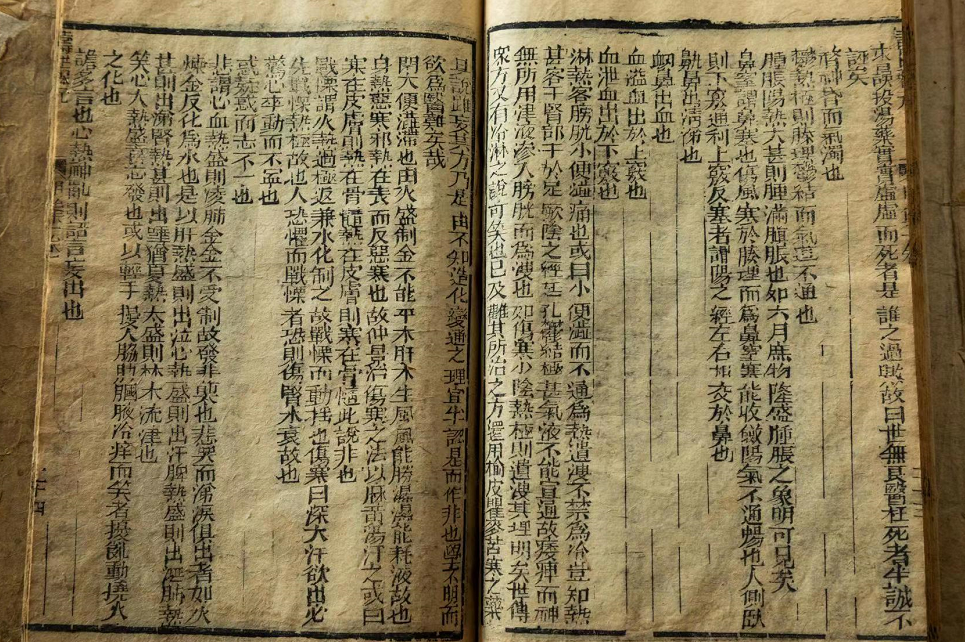 本誤投湯藥實實虛虛而死者是誰之過歟故曰世無良醫枉死者半誠不
誣矣
瞀神昏而氣濁也
鬱熱極則腠理鬱結而氣道不通也
腫脹陽熱大甚則腫滿腹脹也如六月庶物隆盛腫脹之象明可見矣
鼻窒謂鼻塞也傷風寒於腠理而為鼻窒寒能收斂陽氣不通暢也人側臥
則下竅通利上竅反塞者謂陽之經左右相交於鼻也
鼽鼻出清涕也
衂鼻出血也
血溢血出於上竅也
血泄血出於下竅也
淋熱客膀胱小便澁痛也或曰小便澁而不通為熱遺溲不禁為冷豈知熱
甚客于腎部干於足厥陰之經廷孔鬱結極甚氣液不能宣通故痿痺而神
無所用津液滲入膀胱而為溲也如傷寒少陰熱極則遺溲其理明矣世傳
眾方又有冷淋之說可笑也已及觀其所治之方還用榆皮瞿麥苦寒之藥
其說雖妄其方乃是由不知造化變通之理宜乎認是而作非也學不明而
欲為醫難矣哉
閟大便澁滯也由火盛制金不能平木肝木生風風能勝濕濕能耗液故也
身熱惡寒邪熱在表而反惡寒也故仲景治傷寒之法以麻黃湯汗之或曰
寒在皮膚則熱在骨髓熱在皮膚則寒在骨髓此說非也
戰慄謂火熱過極返兼水化制之故戰慄而動搖也傷寒曰深大汗欲出必
先戰慄熱極故也人恐懼而戰慄者恐則傷腎水衰故也
驚心卒動而不盜也
或疑惑而志不一也
悲謂心血熱盛則凌肺金金不受制故發悲哭也悲哭而涕淚俱出者如火
煉金反化為水也是以肝熱盛則出泣心熱盛則出汗脾熱盛則出涎肺熱
甚則出涕腎熱甚則出唾猶夏熱太盛則林木流津也
笑心火熱盛喜志發也或以輕手擾人脇肋膕腋冷痒而笑者擾亂動撓火
之化也
譫多言也心熱神亂則語言妄出也